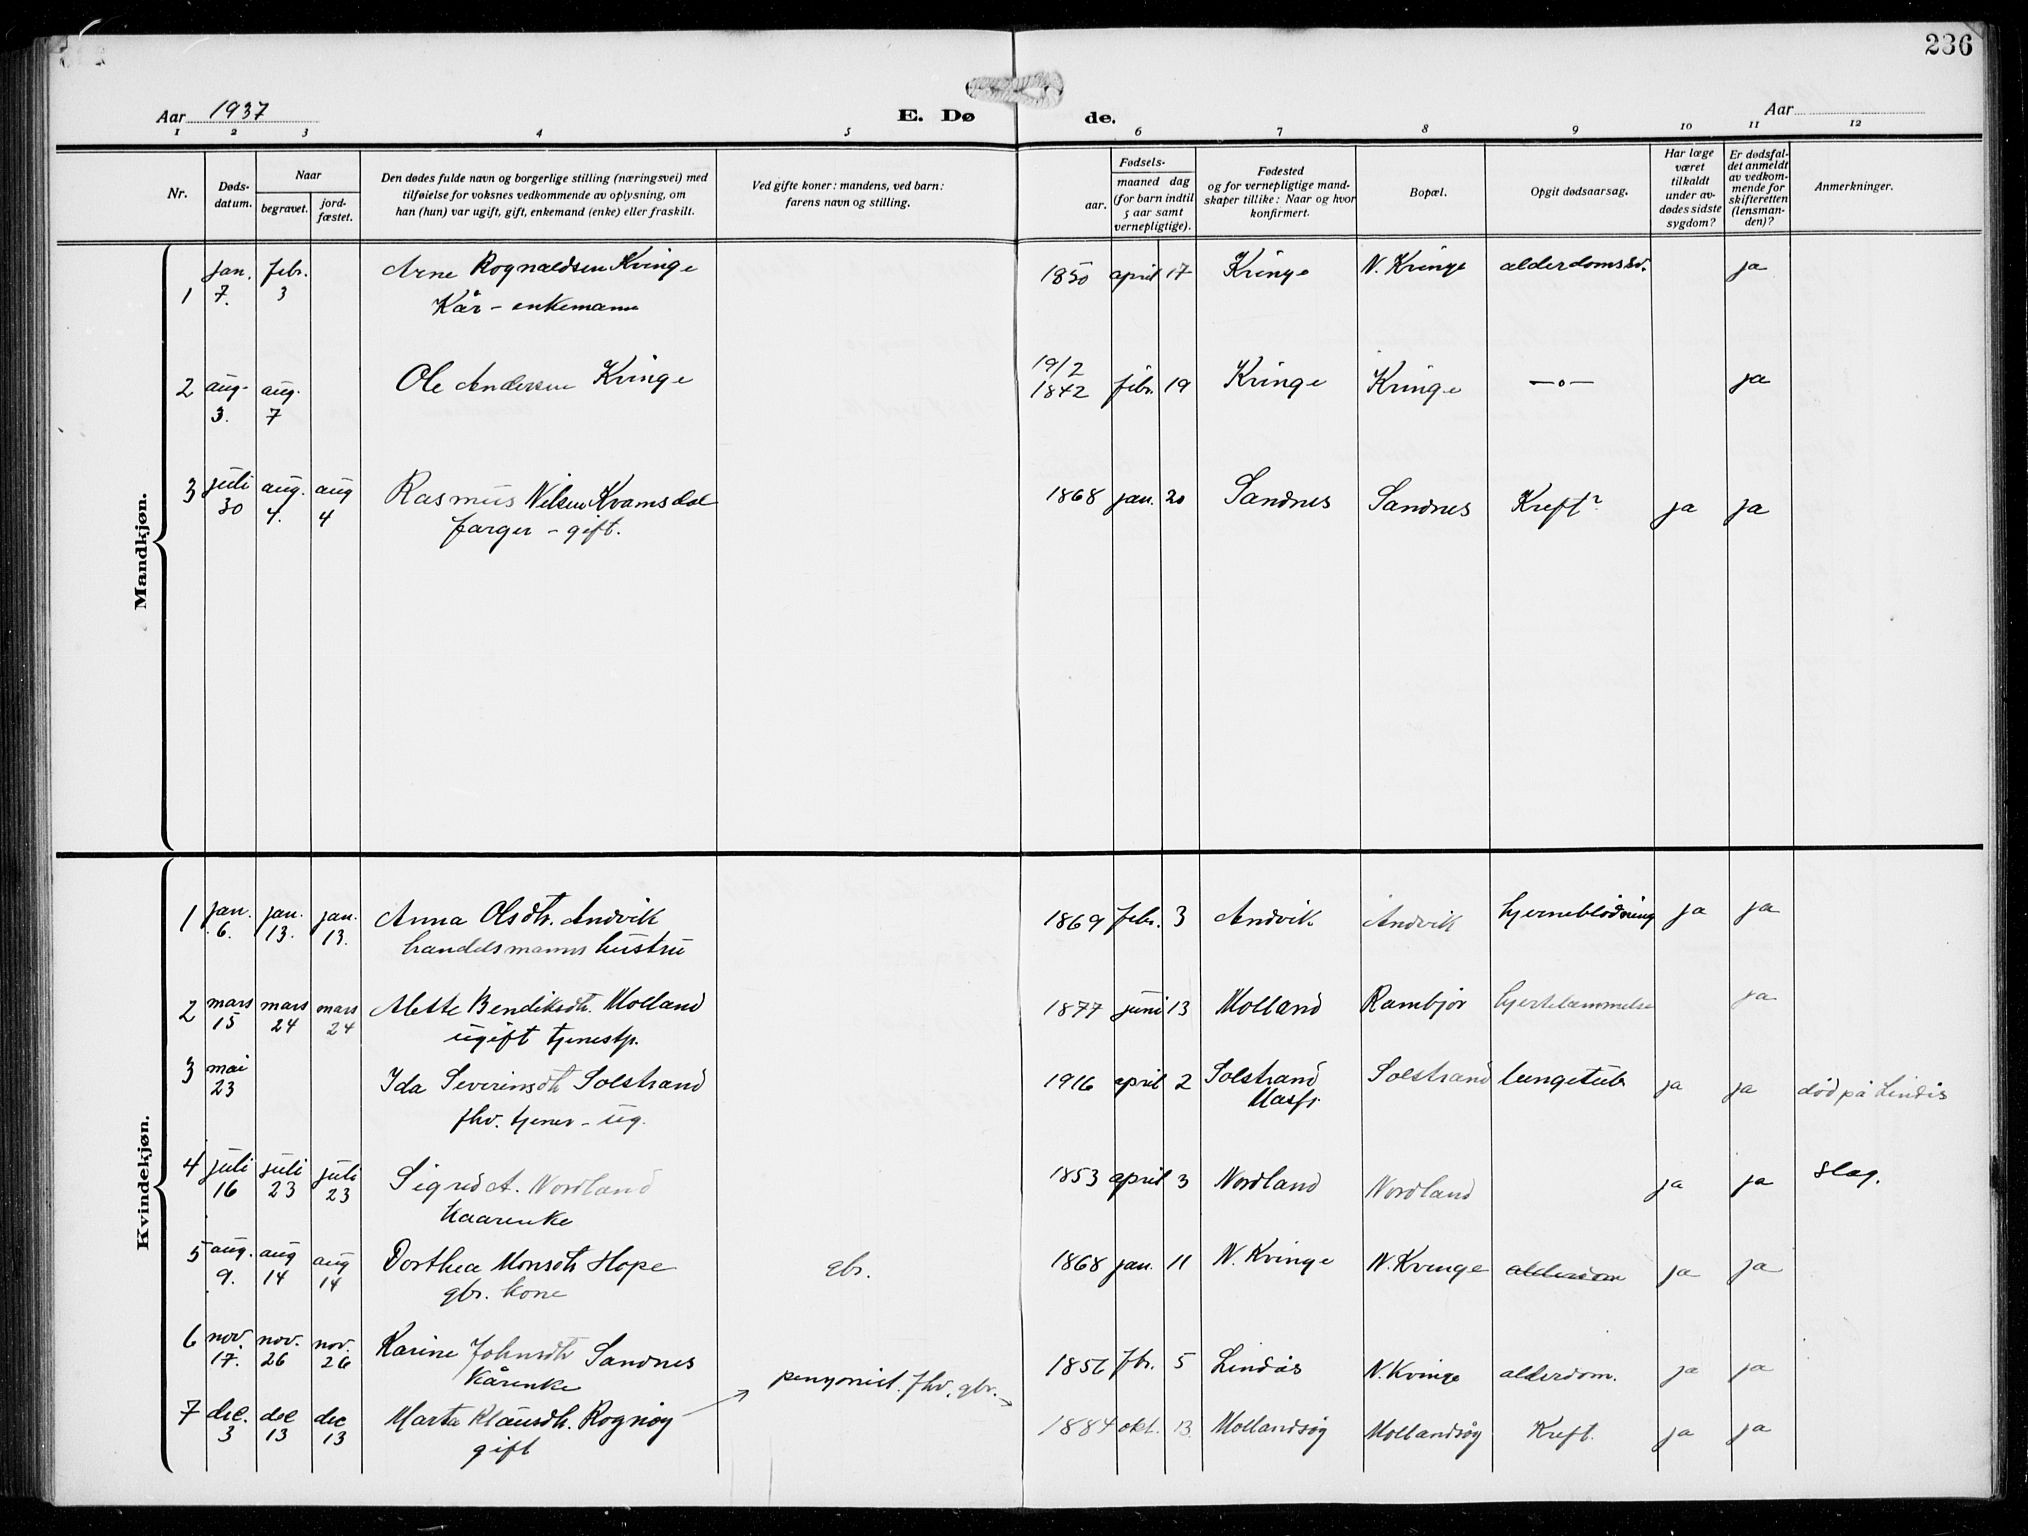 236
Aar 1937
E. Døde.
Aar
1 2 3 4 5 6 7 8 9 10 11 12
Nr.
Døds-
datum.
Naar
begravet.
jord-
fæstet.
Den dødes fulde navn og borgerlige stilling (næringsvei) med
tilføielse for voksnes vedkommende av oplysning, om
han (hun) var ugift, gift, enkemand (enke) eller fraskilt.
Ved gifte koner: mandens, ved barn:
farens navn og stilling.
Fødsels-
aar.
maaned dag
(for barn indtil
5 aar samt
vernepligtige).
Fødested
og for vernepligtige mand-
skaper tillike: Naar og hvor
konfirmert.
Bopæl.
Opgit dødsaarsag.
Har læge
været
tilkaldt
under av-
dødes sidste
sygdom?
Er dødsfal-
det anmeldt
av vedkom-
mende for
skifteretten
(lensman-
den)?
Anmerkninger.
Mandkjøn.
1 jan. 7. febr. 3 Arne Rognaldsen Kvinge 1850 april 17 Kvinge N. Kvinge alderdomssv. ja
Kår - enkemann
2 aug. 3. aug. 7 Ole Andersen Kvinge 19/2 1842 febr. 19 Kvinge Kvinge —o— ja
3 juli 30 aug. 4. aug 4 Rasmus Nilsen Kvamsdal 1868 jan. 20 Sandnes Sandnes Kreft? ja ja
farger - gift.
Kvindekjøn.
1 jan. 6. jan. 13. jan. 13. Anna Olsdtr. Andvik 1869 febr. 3 Andvik Andvik hjerneblødning ja ja
handelsmanns hustru
2 mars 15 mars 24 mars 24 Alette Bendiksdtr. Molland 1877 juni 13 Molland Rambjør hjertelammelse ja
ugift tjenestp.
3 mai 23 Ida Severinsdtr Solstrand 1916 april 2 Solstrand Masfj. Solstrand lungetub ja ja død på Lindås
fhv. tjener - ug.
4 juli 16 juli 23 juli 23 Sigrid A. Nordland 1853 april 3 Nordland Nordland ja ja slag.
Kaarenke
5 aug. 9. aug 14 aug 14 Dorthea Monsdtr Hope gbr. 1868 jan. 11 N. Kvinge N. Kvinge alderdom ja ja
gbr. kone
6 nov. 17. nov. 26 nov. 26 Karine Johnsdtr Sandnes 1856 fbr. 5 Lindås N. Kvinge alderdom. ja ja
Kårenke
7 dec. 3 dec 13 dec 13 Marta Klausdtr. Rognøy pensjonist. fhv. gbr. 1884 okt. 13 Mollandsøy Mollandsøy Kreft. ja ja
gift